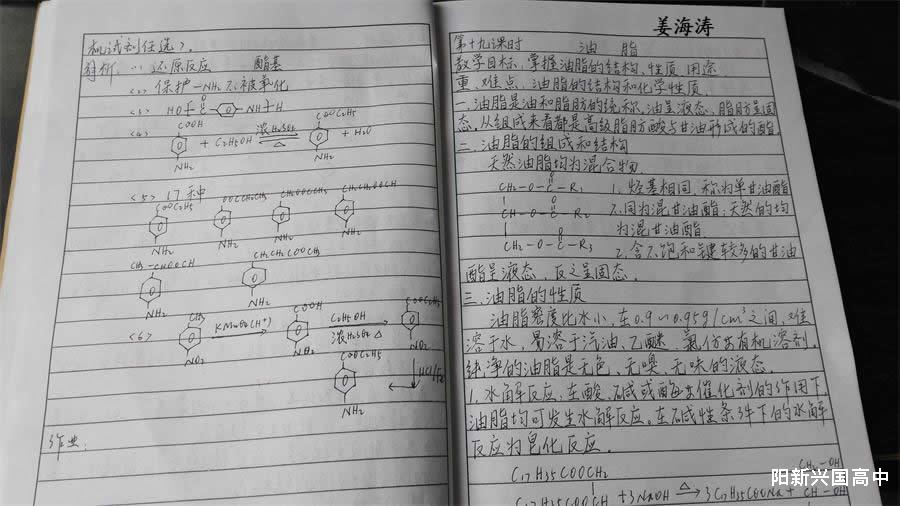 机试剂任选>.
解析: <1> 还原反应 酯基
<2> 保护-NH₂不被氧化
<3> HO NH H
<4> COOH COOC₂H₅
+ C₂H₅OH 浓H₂SO₄ △ + H₂O
NH₂ NH₂
<5> 17种
COOC₂H₅ OOCCH₂CH₃ CH₂OOCCH₃ CH₂CH₂OOCH
NH₂ NH₂ NH₂ NH₂
CH₃-CHOOCH CH₂CH₂COOCH₃
NH₂ NH₂
<6> CH₃ KMnO₄(H⁺) COOH C₂H₅OH 浓H₂SO₄ △ COOC₂H₅
NO₂ NO₂
COOC₂H₅ HCl/Fe
NH₂
作业:
姜海涛
第十九课时 油脂
教学目标, 掌握油脂的结构、性质、用途
重、难点, 油脂的结构和化学性质.
一. 油脂是油和脂肪的统称, 油呈液态, 脂肪呈固
态, 从组成来看都是高级脂肪酸与甘油形成的酯
二. 油脂的组成和结构
天然油脂均为混合物
CH₂-O-C-R₁ 1. 烃基相同, 称为单甘油酯
CH-O-C-R₂ 不同为混甘油酯; 天然的均
为混甘油酯
CH₂-O-C-R₃ 2. 含不饱和键较多的甘油
酯呈液态, 反之呈固态.
三. 油脂的性质
油脂密度比水小, 在0.9~0.95g/cm³之间, 难
溶于水, 易溶于汽油、乙醚、氯仿等有机溶剂.
纯净的油脂是无色、无嗅、无味的液态.
1. 水解反应, 在酸、碱或酶等催化剂的作用下,
油脂均可发生水解反应. 在碱性条件下的水解
反应为皂化反应.
C₁₇H₃₅COOCH₂ CH₂-OH
C₁₇H₃₅COOCH +3NaOH △ 3C₁₇H₃₅COONa + CH-OH
阳新兴国高中